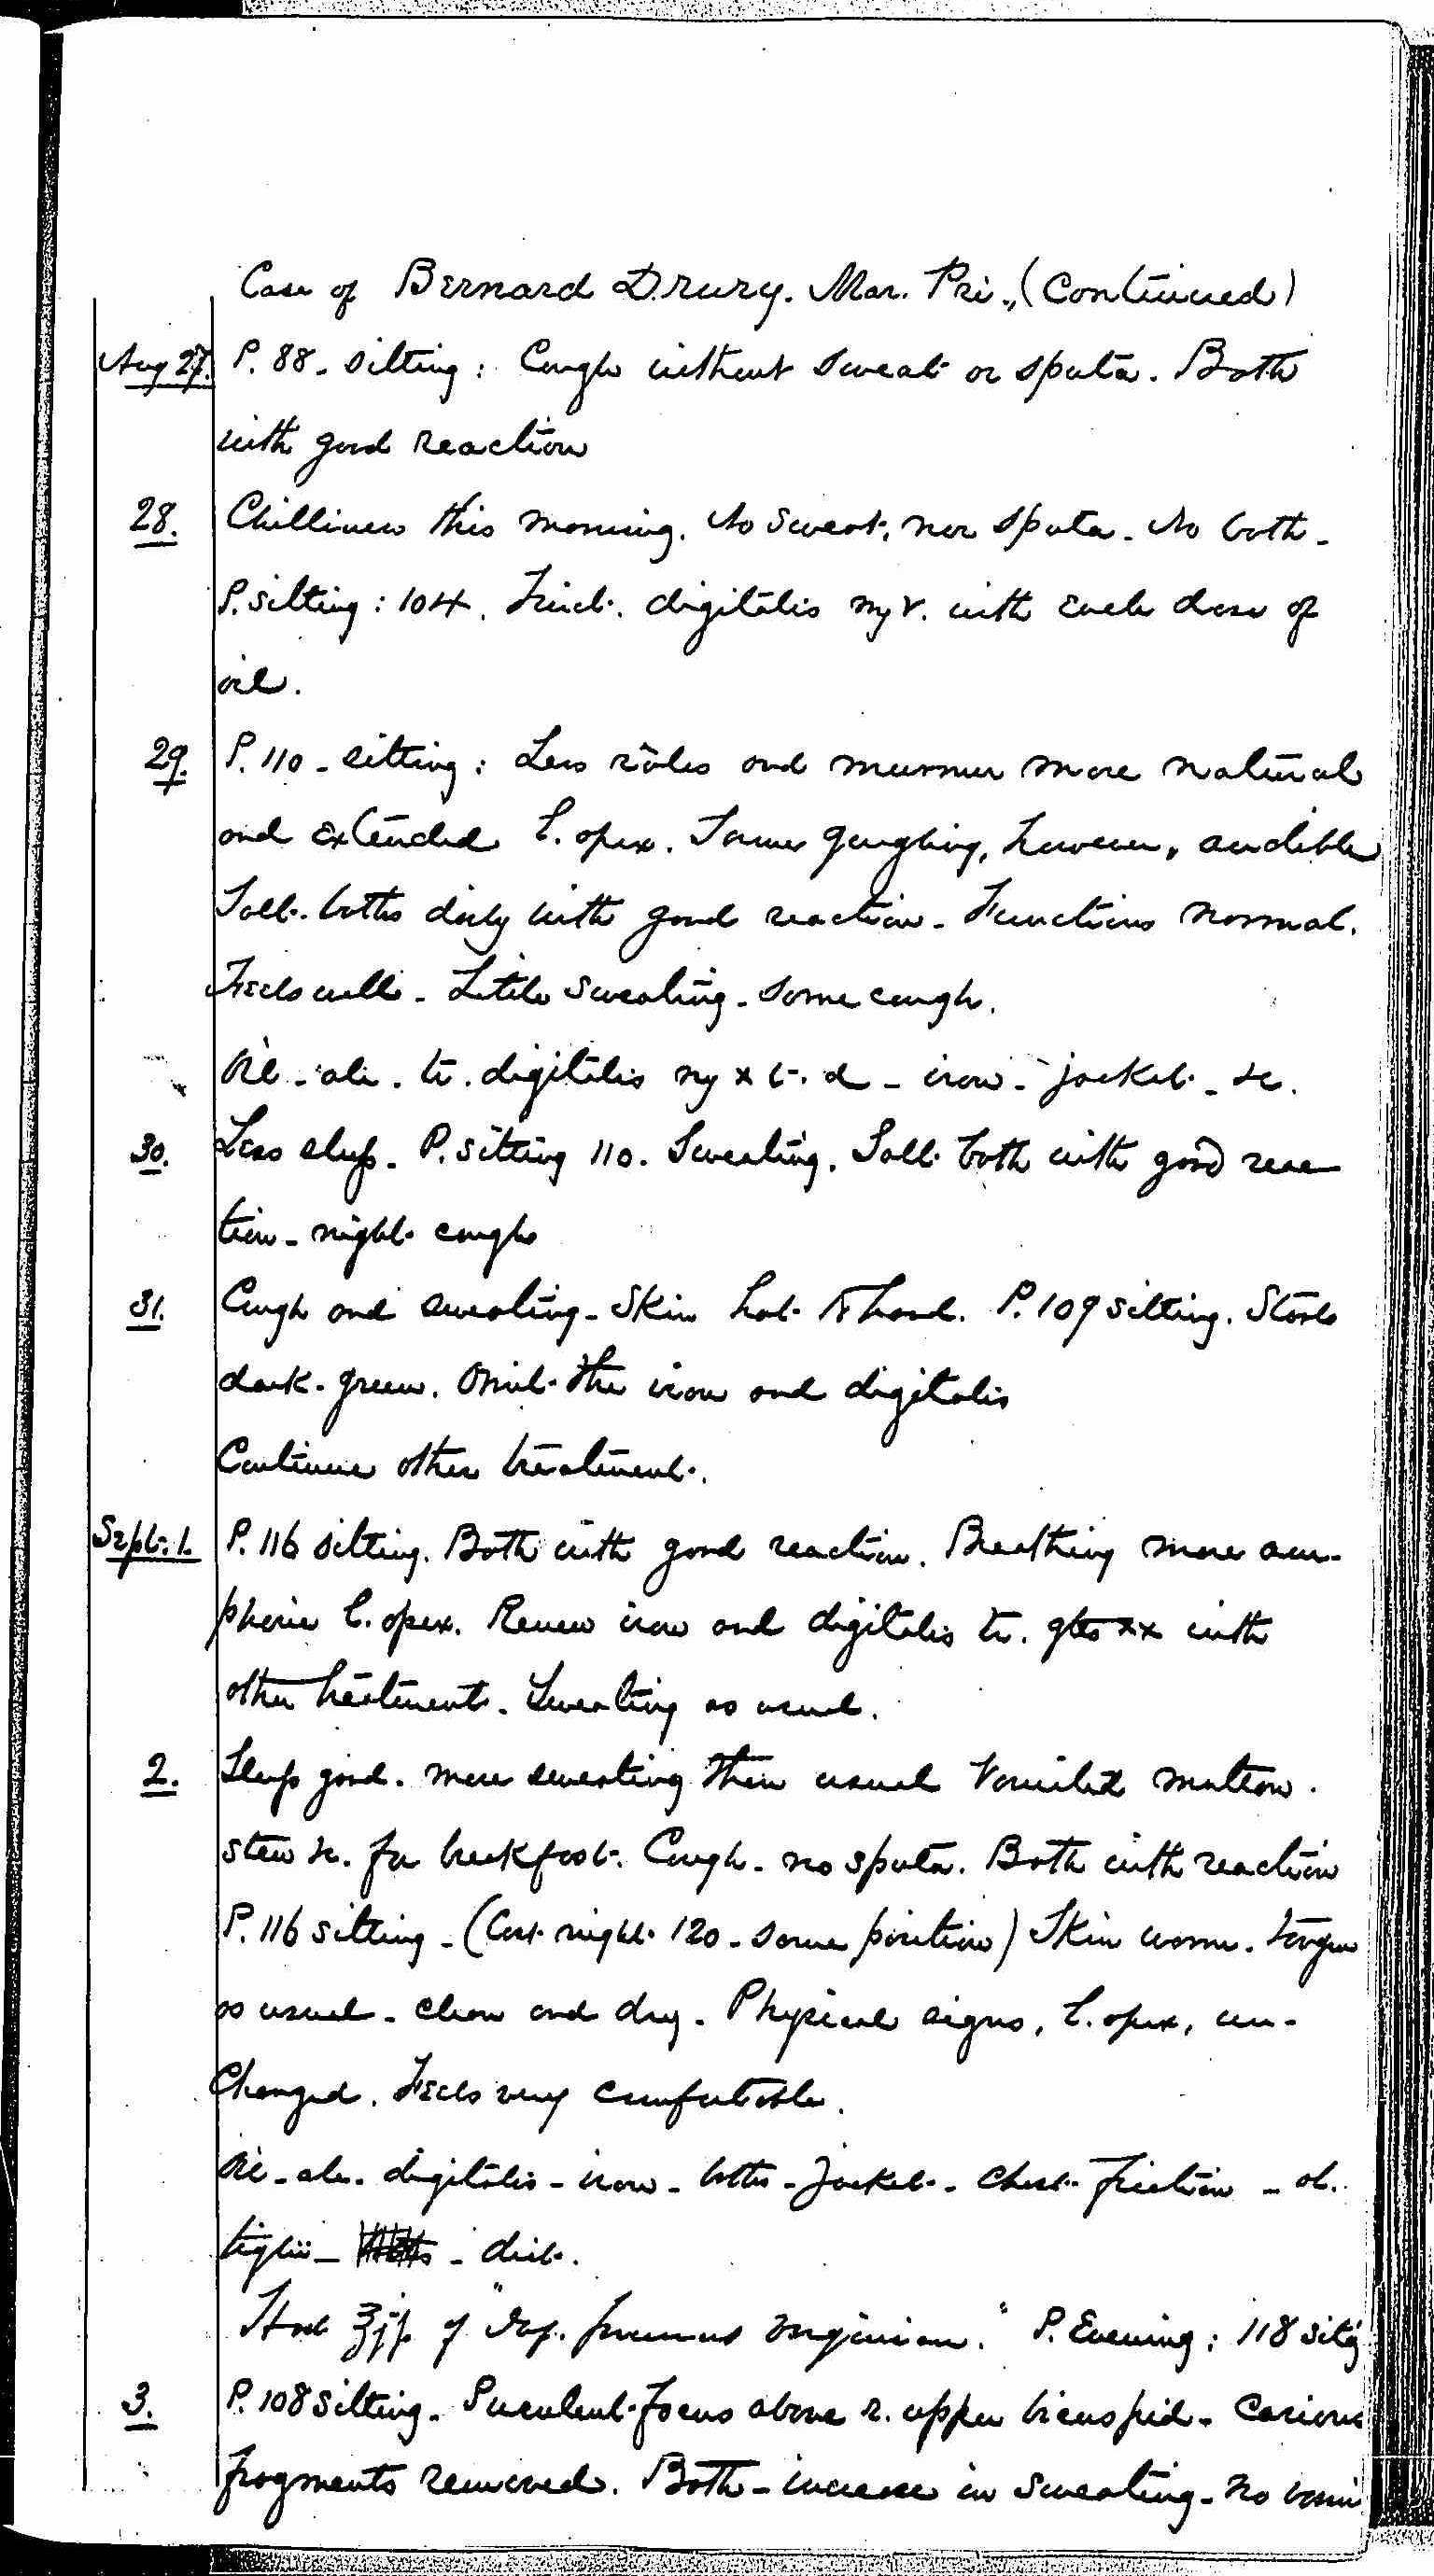 Case of Bernard Drury. Mar. Pri., (Continued)
Aug 27. P. 88 - sitting: Cough without sweat or sputa. Bath
with good reaction
28. Chilliness this morning. No sweat, nor sputa. No bath -
P. sitting: 104. Tinct. digitalis ♏ v. with each dose of
oil.
29. P. 110 - sitting: Less râles and murmur more natural
and extended l. apex. Some gurgling, however, audible
Salt. baths daily with good reaction - Functions normal.
Feels well - Little sweating - some cough.
Oil - ale - tr. digitalis ♏ x t. d - iron - jacket - &c.
30. Less sleep - P. sitting 110. Sweating. Salt bath with good reac
tion - night cough
31. Cough and sweating - Skin hot to hand. P. 109 sitting. Stools
dark-green. Omit the iron and digitalis
Continue other treatment.
Sept. 1. P. 116 sitting. Bath with good reaction. Breathing more am-
phoric l. apex. Renew iron and digitalis tr. gtts xx with
other treatment. Sweating as usual.
2. Sleep good. more sweating than usual Vomited mutton.
stew &c. for breakfast. Cough - no sputa. Bath with reaction
P. 116 sitting - (Last night 120 - same position) Skin warm. Tongue
as usual - clean and dry - Physical signs, l. apex, un-
changed. Feels very comfortable.
Oil - ale - digitalis - iron - baths - jacket - chest friction - ol.
tiglii - - diet.
Had of "Syr. prunus virginian." P. Evening: 118 sit'g
3. P. 108 sitting - Purulent focus above r. upper bicuspid - Carious
fragments removed. Bath - increase in sweating - no vomi